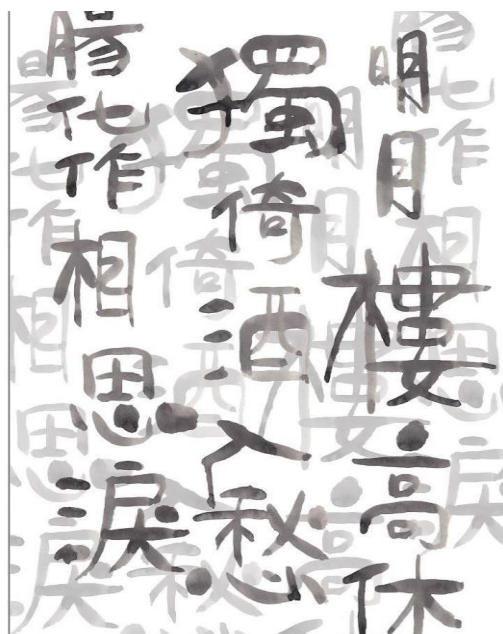 明月樓高休
獨倚酒入愁
腸化作相思淚